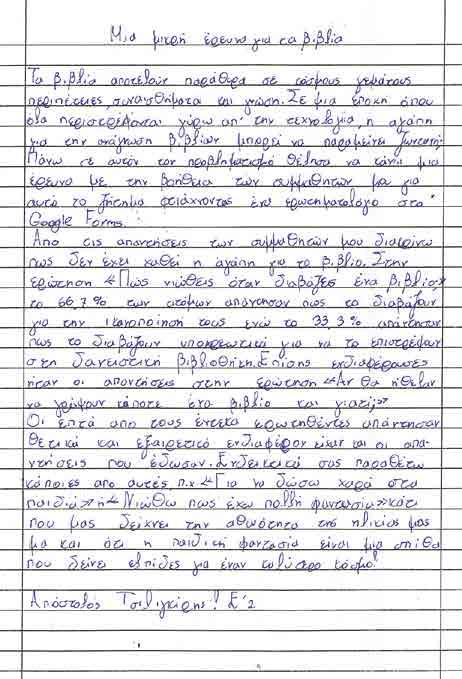 Μια μικρή έρευνα για τα βιβλία
Τα βιβλία αποτελούν παράθυρα σε κόσμους γεμάτους
περιπέτειες, συναισθήματα και γνώση. Σε μια εποχή όπου
όλα περιστρέφονται γύρω απ' την τεχνολογία, η αγάπη
για την ανάγνωση βιβλίων μπορεί να παραμείνει ζωντανή;
Πάνω σε αυτόν τον προβληματισμό θέλησα να κάνω μια
έρευνα με την βοήθεια των συμμαθητών μου για
αυτό το ζήτημα φτιάχνοντας ένα ερωτηματολόγιο στο
Google Forms.
Από τις απαντήσεις των συμμαθητών μου διακρίνω
πως δεν έχει χαθεί η αγάπη για το βιβλίο. Στην
ερώτηση «Πώς νιώθεις όταν διαβάζεις ένα βιβλίο;»
το 66,7% των ατόμων απάντησαν πως το διαβάζουν
για την ικανοποίησή τους ενώ το 33,3% απάντησαν
πως το διαβάζουν υποχρεωτικά για να το επιστρέψουν
στη δανειστική βιβλιοθήκη. Επίσης ενδιαφέρουσες
ήταν οι απαντήσεις στην ερώτηση «Αν θα ήθελαν
να γράψουν κάποτε ένα βιβλίο και γιατί;»
Οι επτά από τους έντεκα ερωτηθέντες απάντησαν
θετικά και εξαιρετικό ενδιαφέρον είχαν και οι απα-
ντήσεις που έδωσαν. Ενδεικτικά σας παραθέτω
κάποιες από αυτές, π.χ «Για να δώσω χαρά στα
παιδιά» ή «Νιώθω πως έχω πολλή φαντασία» κάτι
που μας δείχνει την αθωότητα της ηλικίας μας
μα και ότι η παιδική φαντασία είναι μια σπίθα
που δίνει ελπίδες για έναν καλύτερο κόσμο!
Απόστολος Τσιλιγκίρης! Ε'2